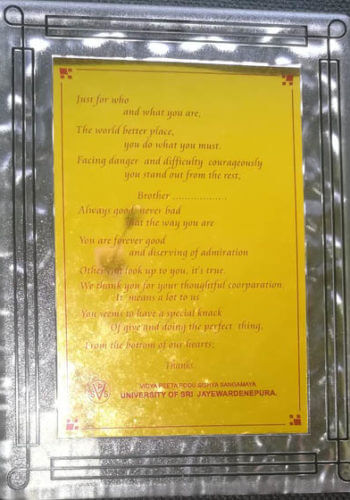 Just for who
and what you are,
The world better place,
you do what you must.
Facing danger and difficulty courageously
you stand out from the rest,
Brother ..................
Always good, never bad
that the way you are
You are forever good
and diserving of admiration
Others look up to you, it's true.
We thank you for your thoughtful coorparation
It means a lot to us
You seems to have a special knack
Of give and doing the perfect thing,
From the bottom of our hearts;
Thanks.
VIDYA PEETA SISHYA SANGAMAYA
UNIVERSITY OF SRI JAYEWARDENEPURA.